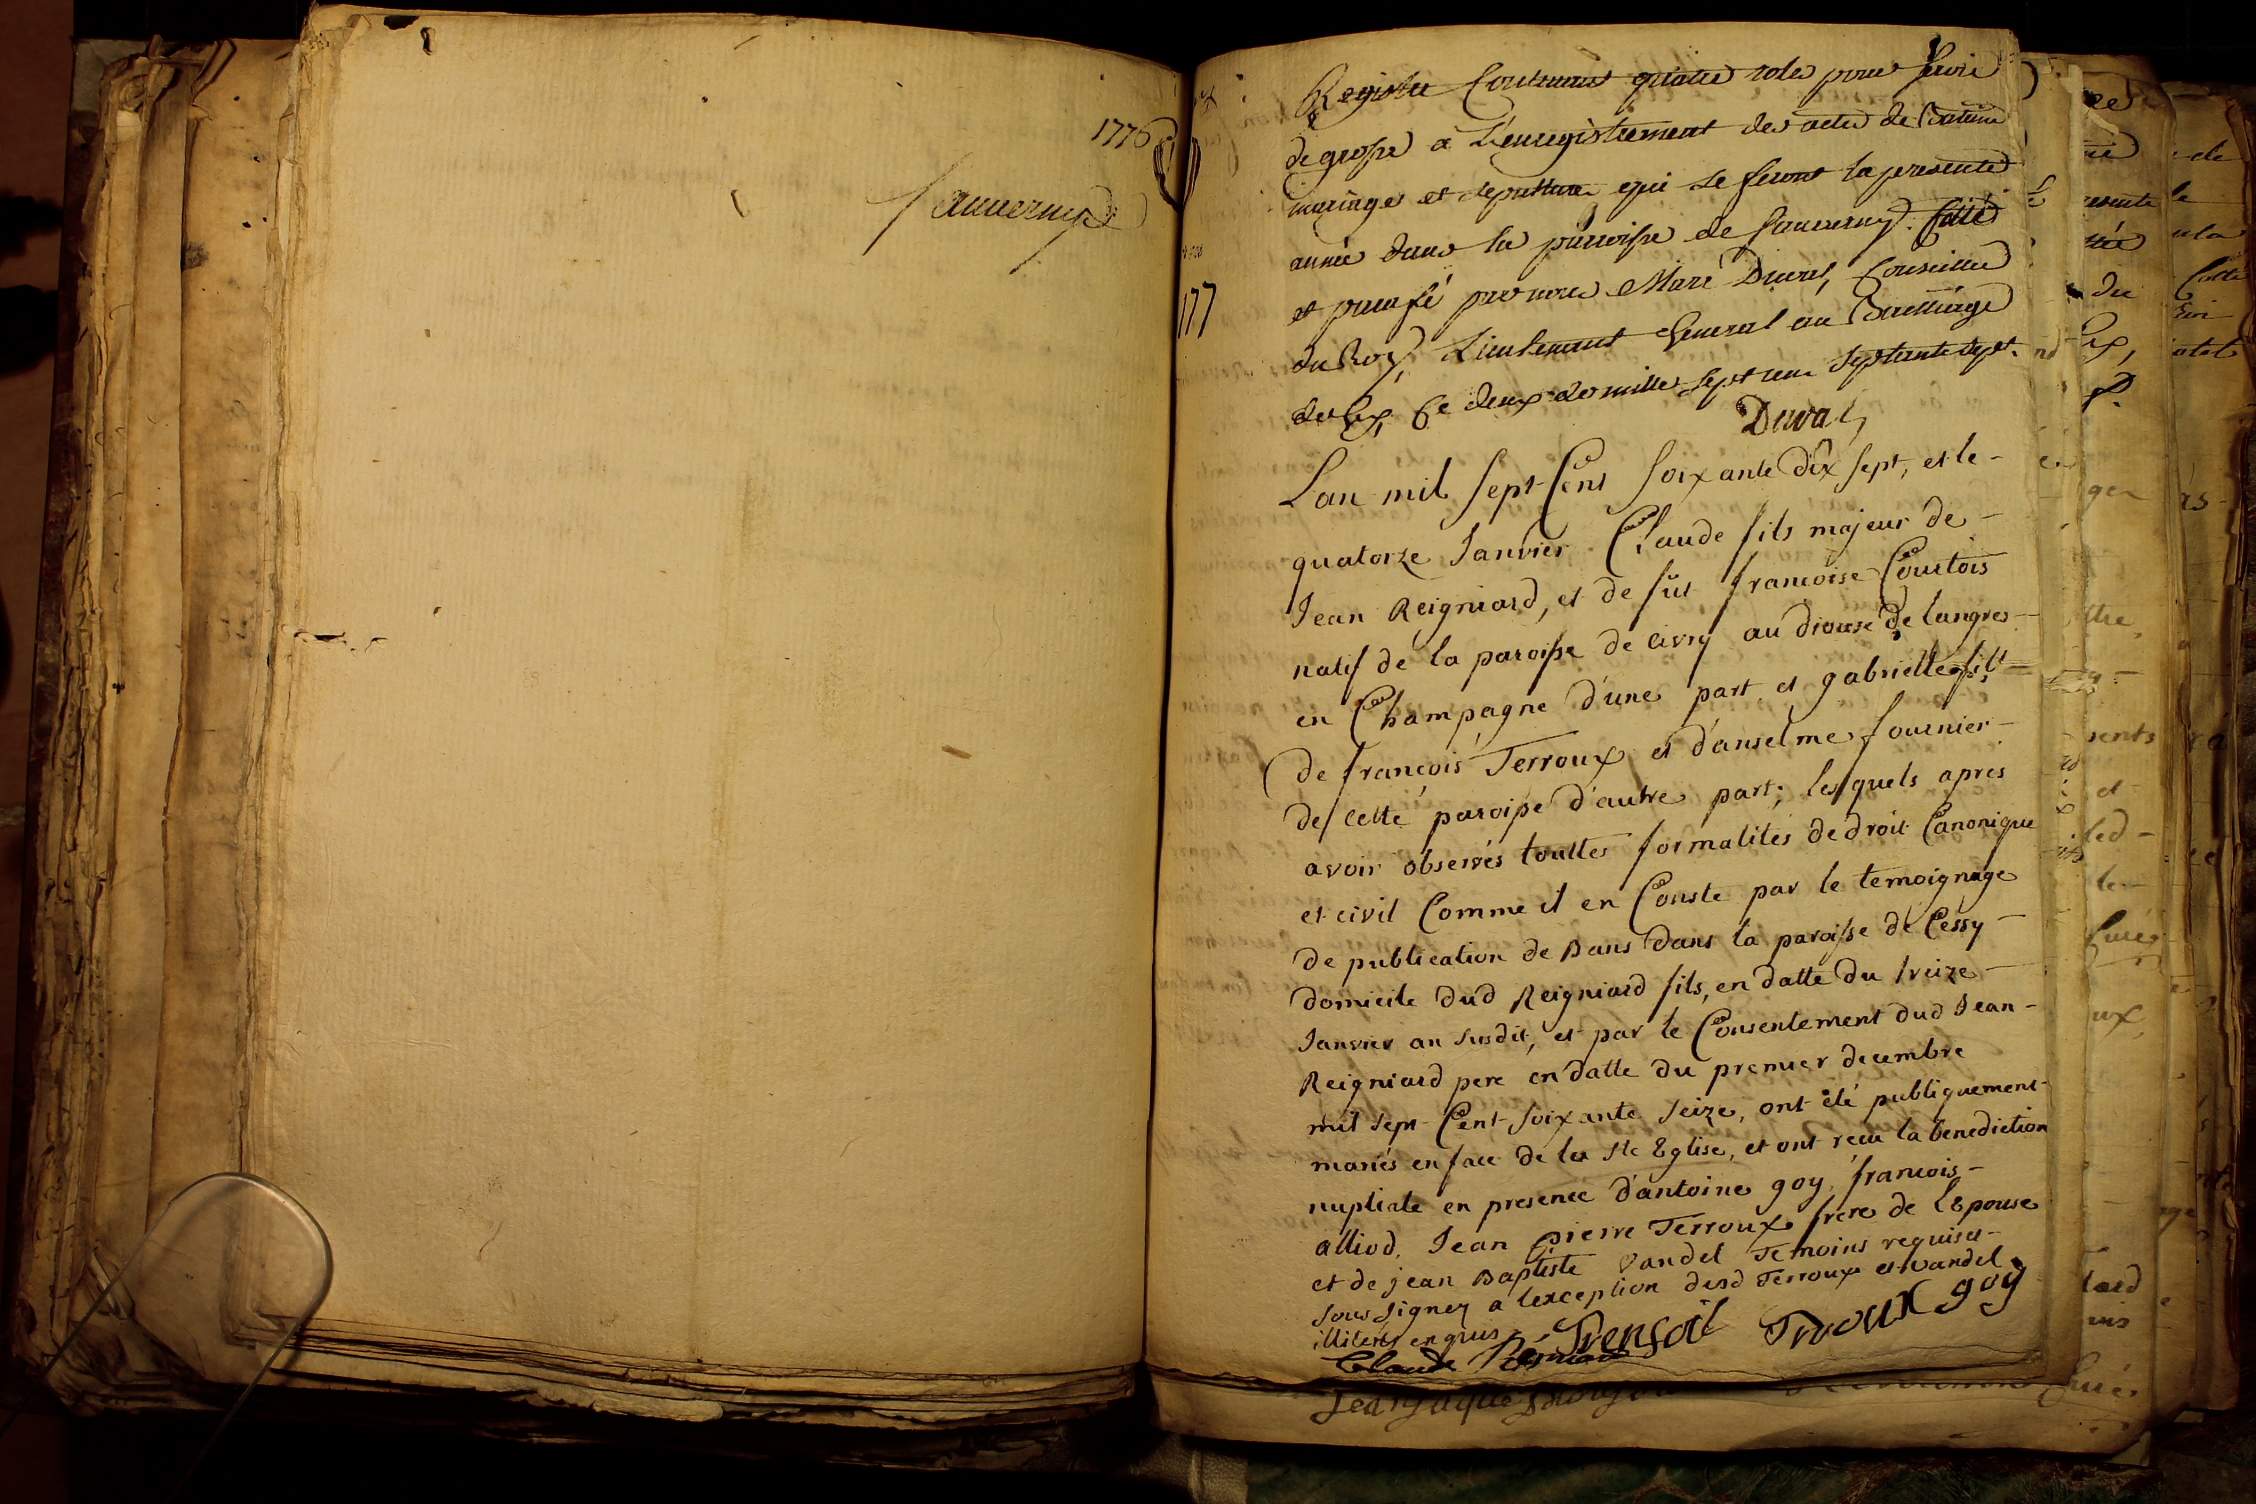 1776
Sauverny
177
Registre Contenant quatre roles pour servir
de grosse a L'enregistrement des actes de Batême
mariages et sepulture qui se feront la presente
année dans la parroisse de Sauverny. Cotté
et paraffé par nous Marc Duval, Conseiller
du Roy, Lieutenant General au Bailliage
de Gex, Ce deux de mille sept cent septante sept.
Duval,
Lan mil sept Cent soixante dix sept, et le -
quatorze Janvier Claude fils majeur de -
Jean Reigniard, et de fut francoise Courtois
natif de la paroisse de civry au diocese de langres -
en Champagne d'une part et gabrielle fille
de francois Terroux et d'anselme fournier -
de cette paroisse d'autre part; lesquels apres
avoir observés touttes formalités de droit Canonique
et civil Comme il en Conste par le temoignage
de publication de Bans dans la paroisse de Cessy -
domicile dud Reigniard fils, en datte du treize -
Janvier an susdit, et par le Consentement dud Jean -
Reigniard pere en datte du premier decembre
mil sept Cent soixante seize, ont été publiquement -
mariés en face de la Ste Eglise, et ont recu la benediction
nuptiale en presence d'antoine goy, francois -
alliod, Jean pierre Terroux frere de l'Epouse
et de jean Baptiste vandel Temoins requis et -
sous signez a lexception desd Terroux et vandel
illiterés enquis.
Claude Trensal Troux goy
Jean jaque